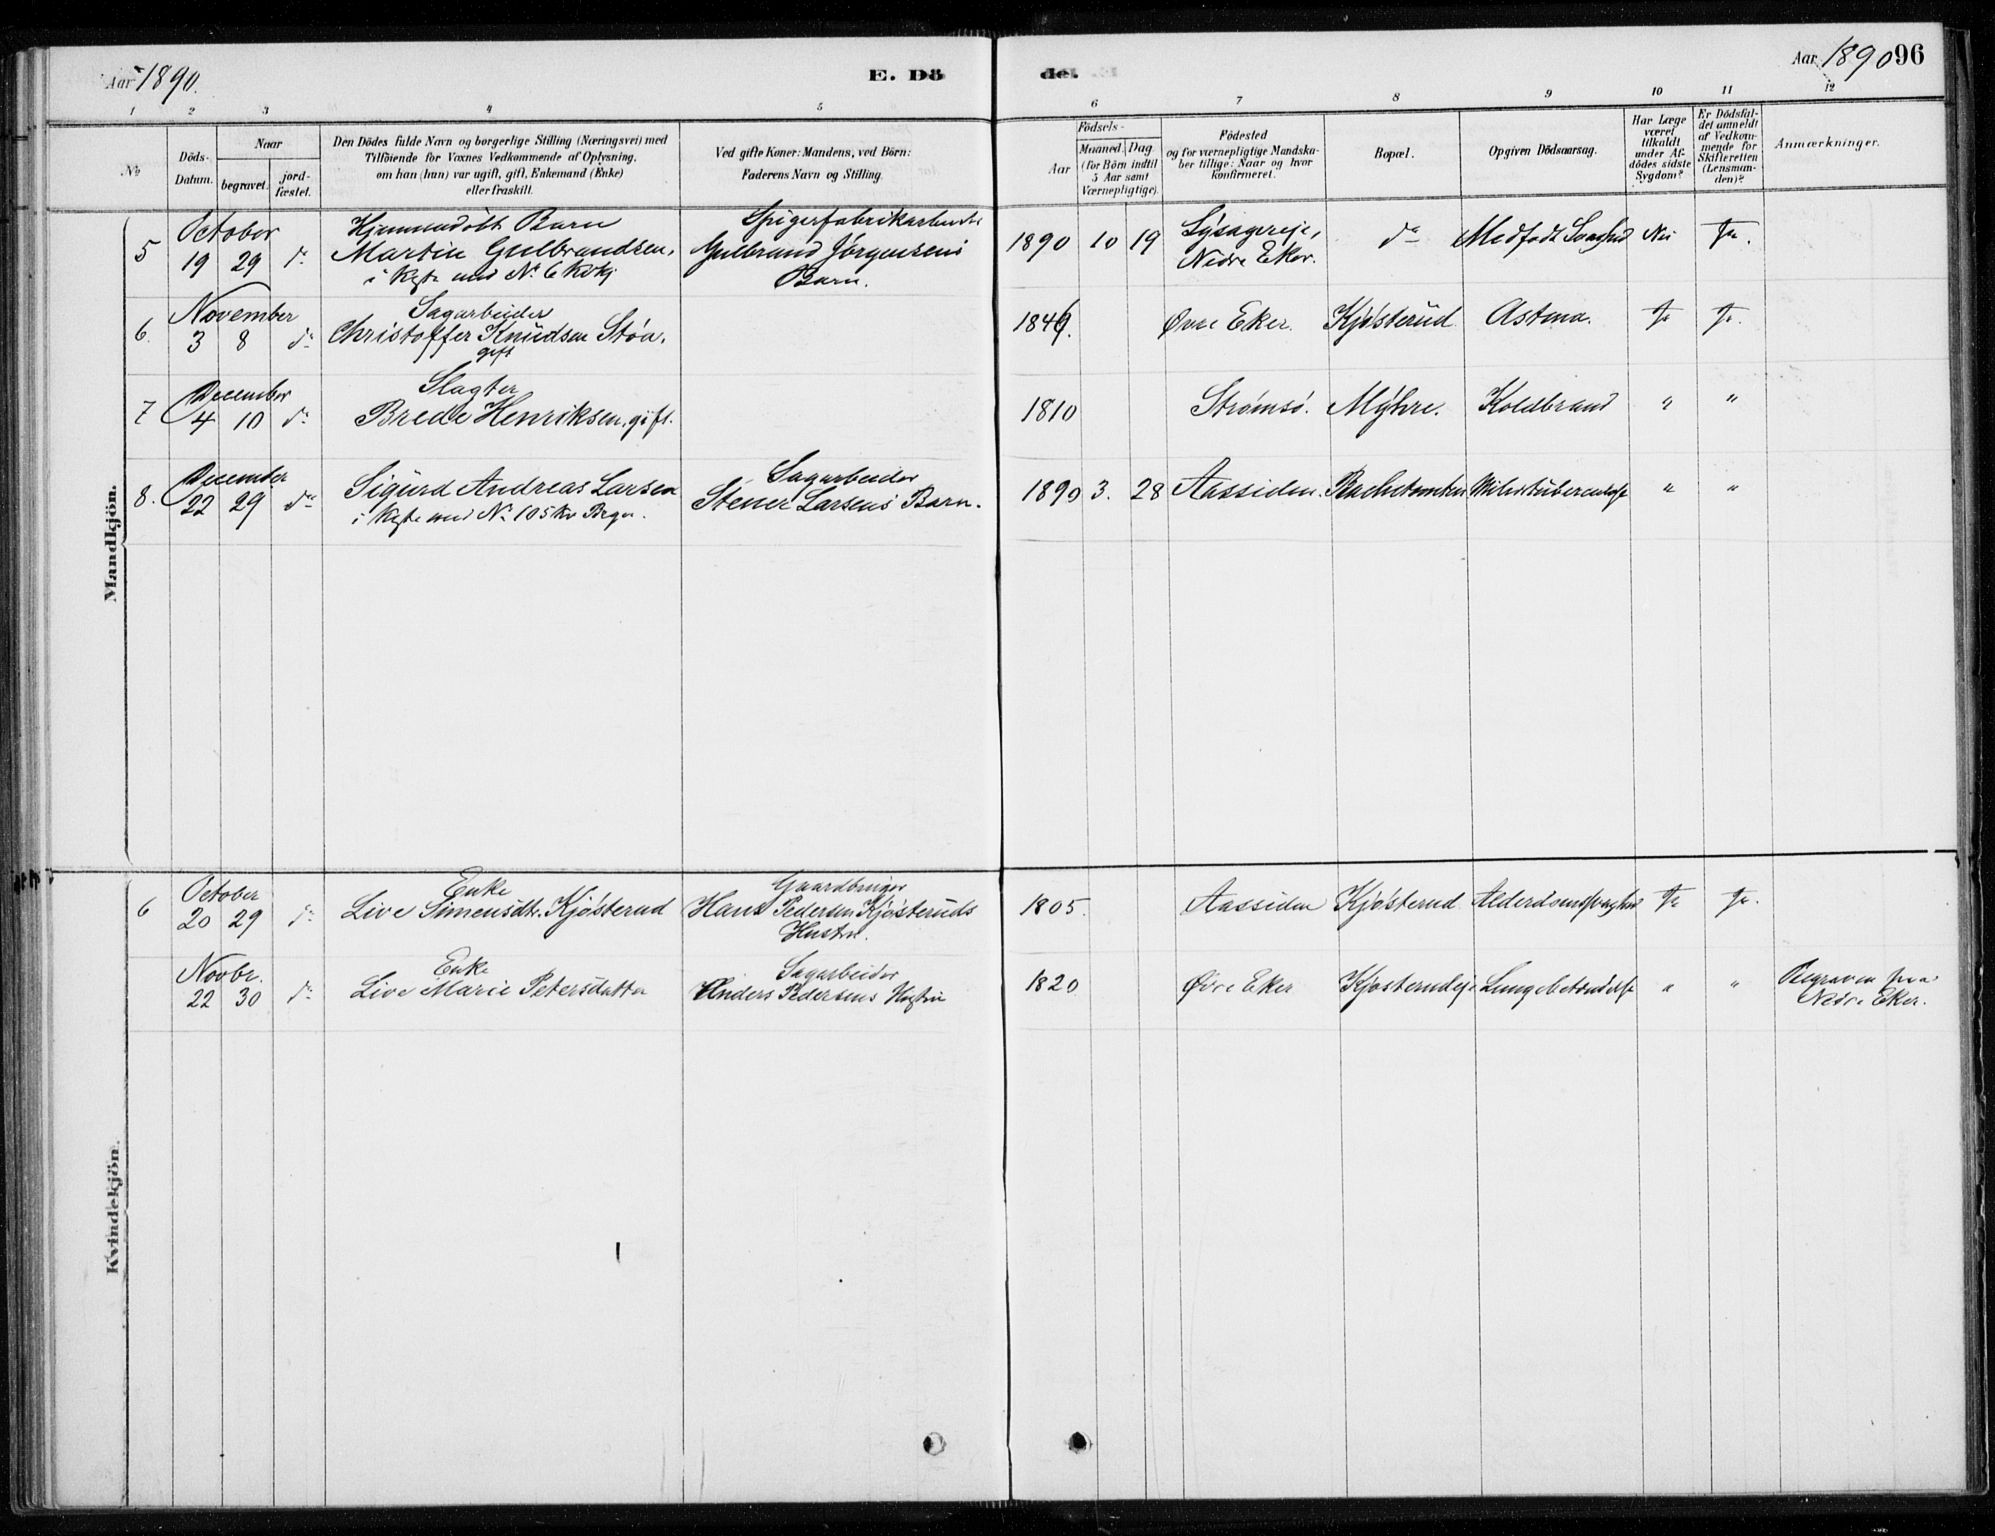 Aar 1890.
E. Dö
del.
Aar 1890 96
1 2 3 4 5 6 7 8 9 10 11 12
No
Döds-
Datum.
Naar
begravet.
jord-
fæstet.
Den Dödes fulde Navn og borgerlige Stilling (Næringsvei) med
Tilföiende for Voxnes Vedkommende af Oplysning.
om han (hun) var ugift, gift, Enkemand (Enke)
eller fraskilt.
Ved gifte Koner: Mandens, ved Börn:
Faderens Navn og Stilling.
Födsels-
Aar
Maaned. Dag
(for Börn indtil
5 Aar samt
Værnepligtige).
Födested
og for værnepligtige Mandska-
ber tillige: Naar og hvor
konfirmeret.
Bopæl.
Opgiven Dödsaarsag.
Har Læge
været
tilkaldt
under Af-
dödes sidste
Sygdom?
Er Dödsfal-
det anmeldt
af Vedkom-
mende for
Skifteretten
(Lensman-
den)?
Anmærkninger.
Mandkjön.
October Hjemmedöbt Barn Spigerfabrikarbeider
5 19 29 do Martin Gulbrandsen, Gulbrand Jörgensens 1890 10 19 Lysagereje, do Medfødt Svaghed Nei Ja.
i Kgste med No 6 Barn. Nedre Eker.
November Sagarbeider
6. 3 8 do Christoffer Knudsen Støa, 1849. Øvre Eker. Kjøsterud Astma. Ja Ja.
gift
December Slagter
7 4 10 do Brede Henriksen, gift. 1810 Strømsø. Myhre. Koldbrand " "
December Sagarbeider
8. 22 29 do Sigurd Andreas Larsen Stener Larsens Barn. 1890 3. 28 Aassiden. " "
i Kgste med No 105
Kvindekjön.
October Enke Gaardbruger
6 20 29 do Live Simensdtr. Kjøsterud Hans Pedersen Kjøsteruds 1805. Aassiden Kjøsterud Alderdomssvaghed Ja Ja.
Hustru.
Novbr. Enke Sagarbeider
22 30 do Live Marie Petersdatter Anders Pedersens Hustru 1820 Øvre Eker Kjøsterudeje Lungebetændelse " " Begraven paa
Nedre Eker.